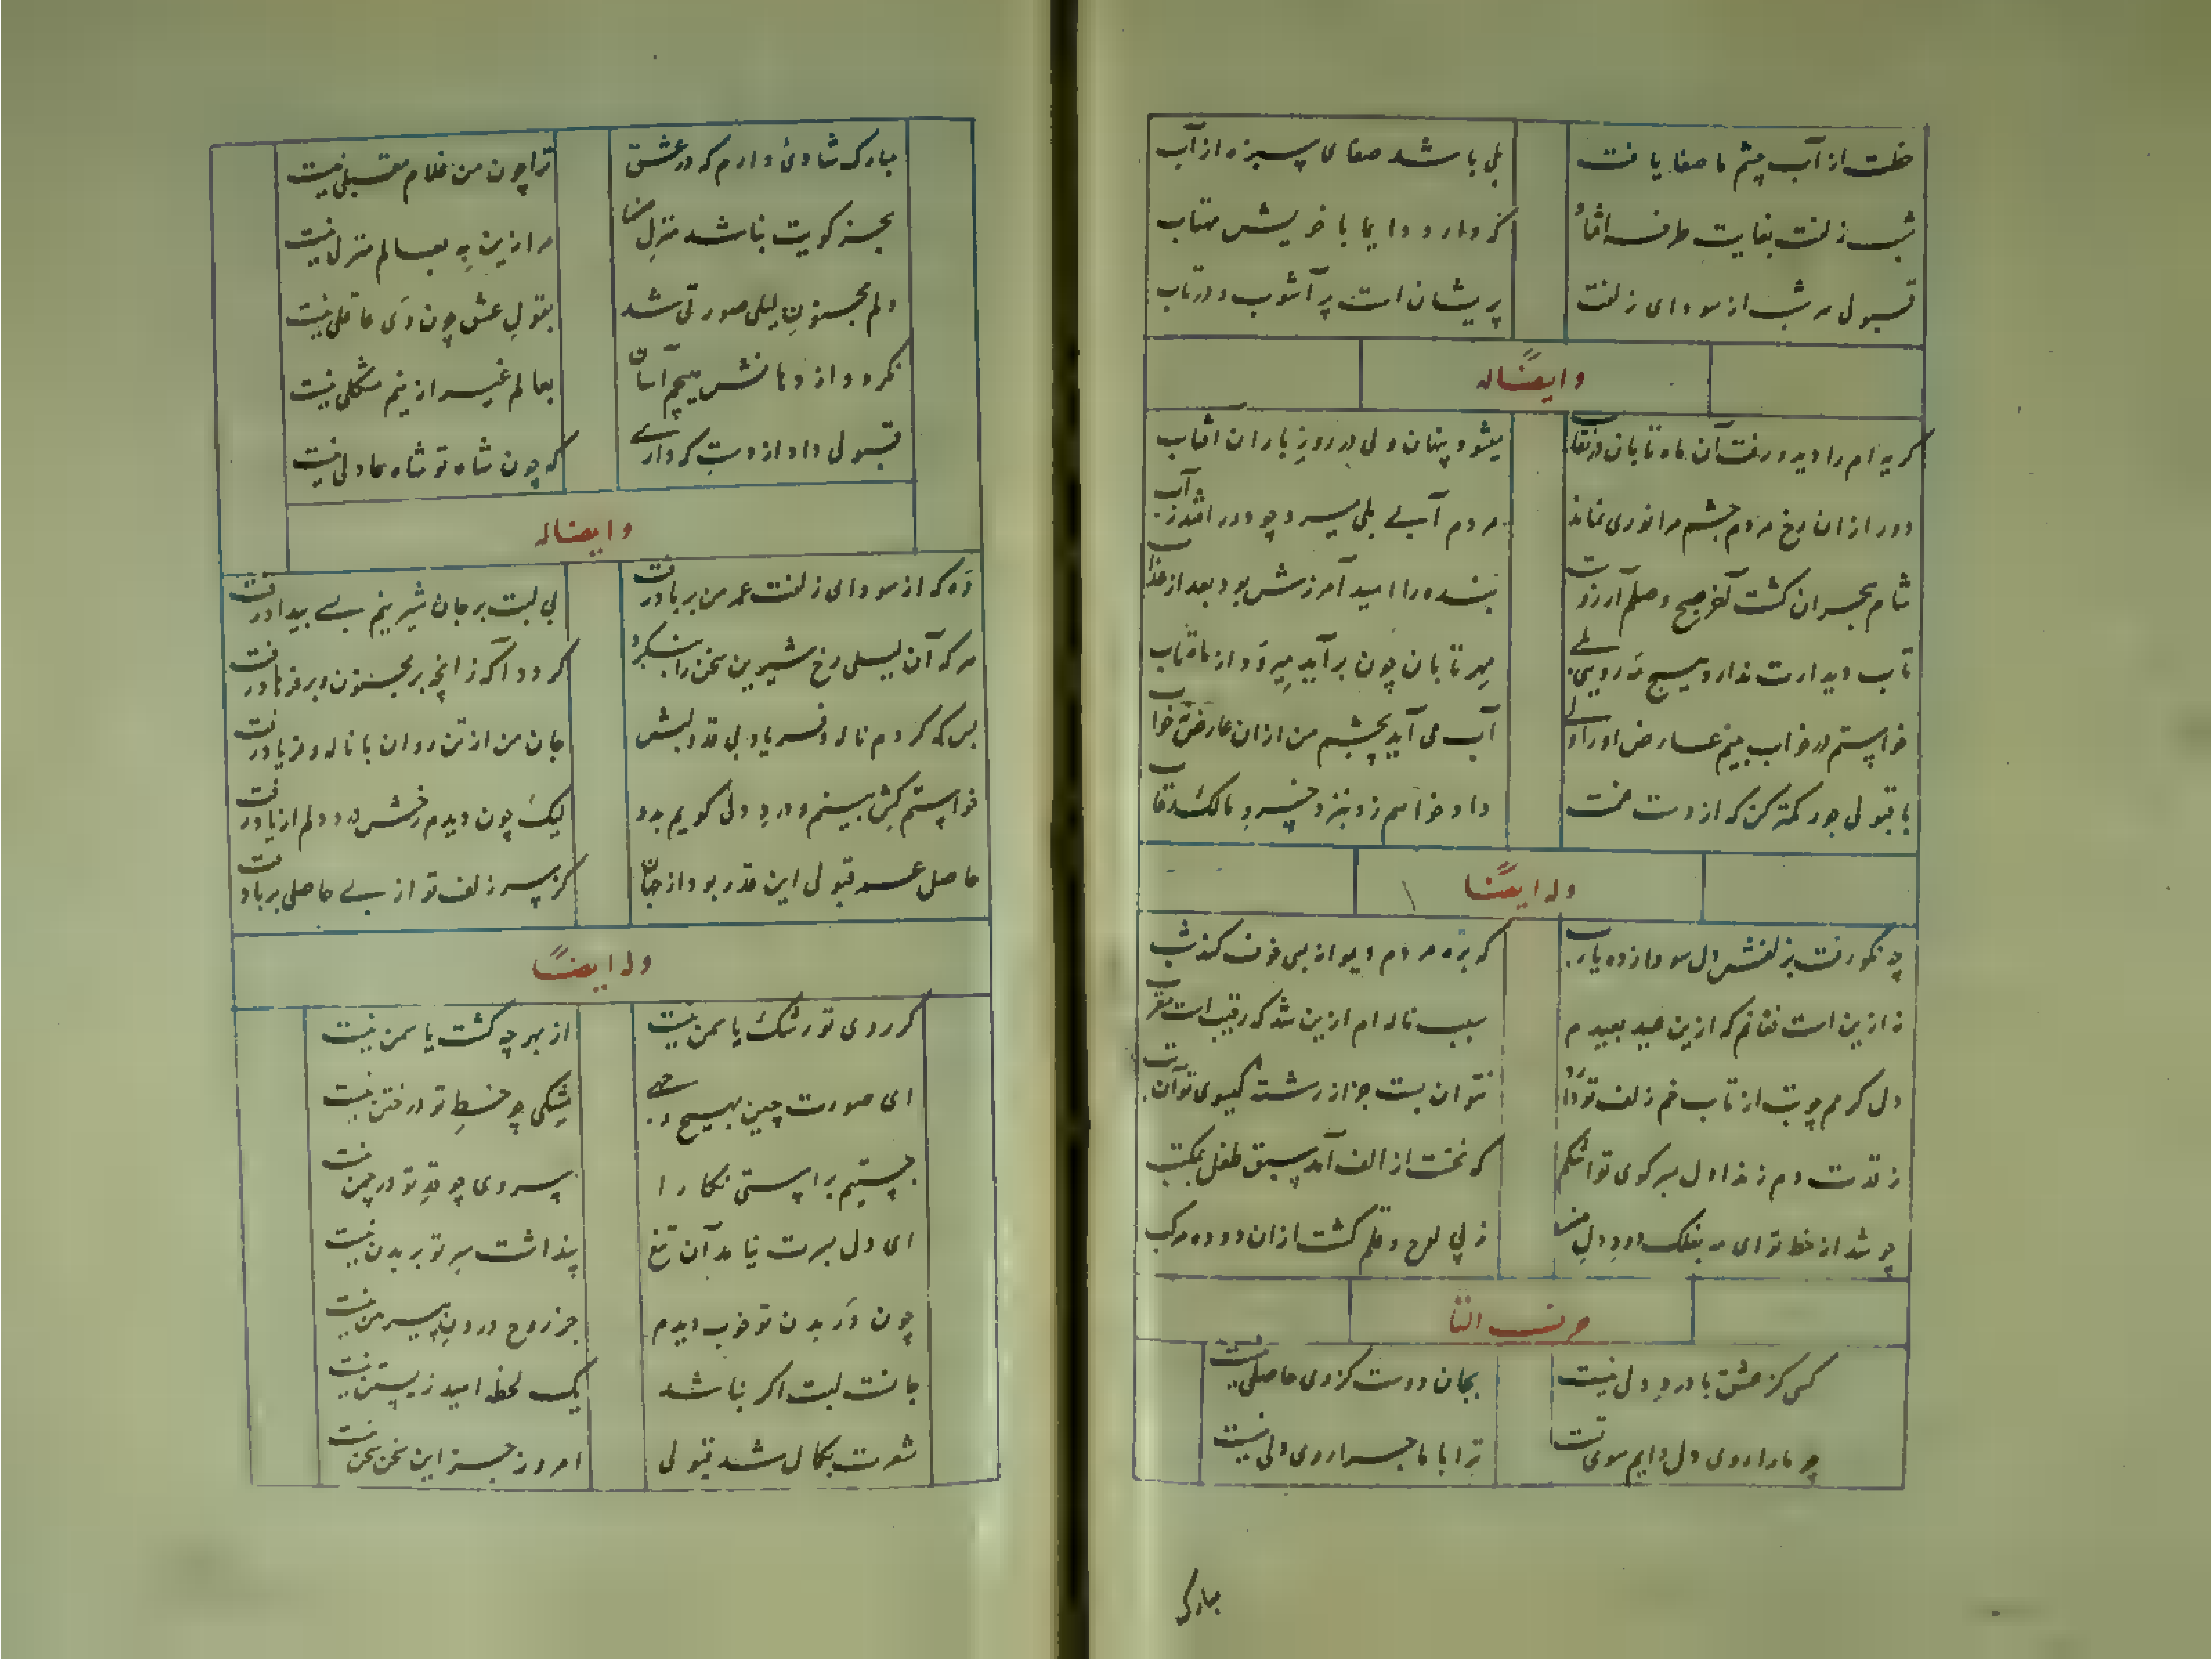 خطت از آب چشم ما صفا یافت
بلی باشد صفای سبزه از آب
شب زلفت بغایت طرفه افتاد
که دارد دایما با خویش مهتاب
قبولی هر شب از سودای زلفت
پریشان است پر آشوب و در تاب
وایضاً له
کریه ام را دید و رفت آن ماه تابان در نقاب
میشود پنهان ولی در روز باران افتاب
دور از آن رخ مردم چشم مرا نوری نماند
مردم آبی بلی میرد چو دور افتد ز آب
شام هجران کشت آخر صبح وصلم آرزوست
بنده را امید آمرزش بود بعد از عذاب
تاب دیدارت ندارد هیچ مه رویی بلی
مهر تابان چون برآید میرود از ماه تاب
خواستم در خواب بینم عارض او را ولی
آب می آید بچشم من از آن عارض نه خواب
با قبولی جور کمتر کن که از دست غمت
داد خواهم زد بنزد خسرو مالک رقاب
وله ایضاً
چه نکو رفت بزلفش دل سودازده یارب
که بره مردم دیوانه بسی خوف کند شب
نه ازین است فغانم که ازین عید بعیدم
سبب ناله ام از این شد که رقیب است مقرب
دل کرمم چو تب از تاب خم زلف تو دارد
نتوان بست جز از رشته کیسوی تو آن تب
ز قدت دم زند اول بسر کوی تو اشکم
که نخست از الف آمد سبق طفل بمکتب
چو شد از خط تو ای مه بفلک دود دل من
ز پی لوح و قلم کشت از آن دوده مرکب
حرف التا
کسی کز عشق با درد دلی نیست
بجان دوست کز وی حاصلی نیست
چو ما را روی دل دایم سوی تست
ترا با ما چرا روی دلی نیست
مبارک
مبارک شادئ دارم که در عشق
ترا چون من غلام مقبلی نیست
بجز کویت نباشد منزل من
مرا زین به بعالم منزلی نیست
دلم مجنون لیلی صورتی شد
بقول عشق چون وی عاقلی نیست
نکردد از دهانش هیچم آسان
بعالم غیر ازینم مشکلی نیست
قبولی داد از دست که داری
که چون شاه تو شاه عادلی نیست
وایضاً له
وه که از سودای زلفت عمر من بر باد رفت
بی لبت بر جان شیرینم بسی بیداد رفت
هر که آن لیلی رخ شیرین سخن را بنکرد
کردد آکه زانچه بر مجنون و بر فرهاد رفت
بس که کردم ناله و فریاد بی قد و لبش
جان من از تن روان با ناله و فریاد رفت
خواستم کش بینم و درد دلی کویم بدو
لیک چون دیدم رخش درد دلم از یاد رفت
حاصل عمر قبولی این قدر بود از جهان
کز سر زلف تو از بی حاصلی بر باد رفت
وله ایضاً
کر روی تو رشک یاسمن نیست
از بهر چه کشت یاسمن نیست
ای صورت چین بهیچ وجهی
مشکی چو خط تو در ختن نیست
جستیم براستی نکارا
سروی چو قد تو در چمن نیست
ای دل بسرت نیامد آن تیغ
پنداشت سر تو بر بدن نیست
چون در بدن تو خوب دیدم
جز روح درون پیرهن نیست
جانست لبت اکر نباشد
یک لحظه امید زیستن نیست
شعرت بکمال شد قبولی
امروز جز این سخن سخن نیست